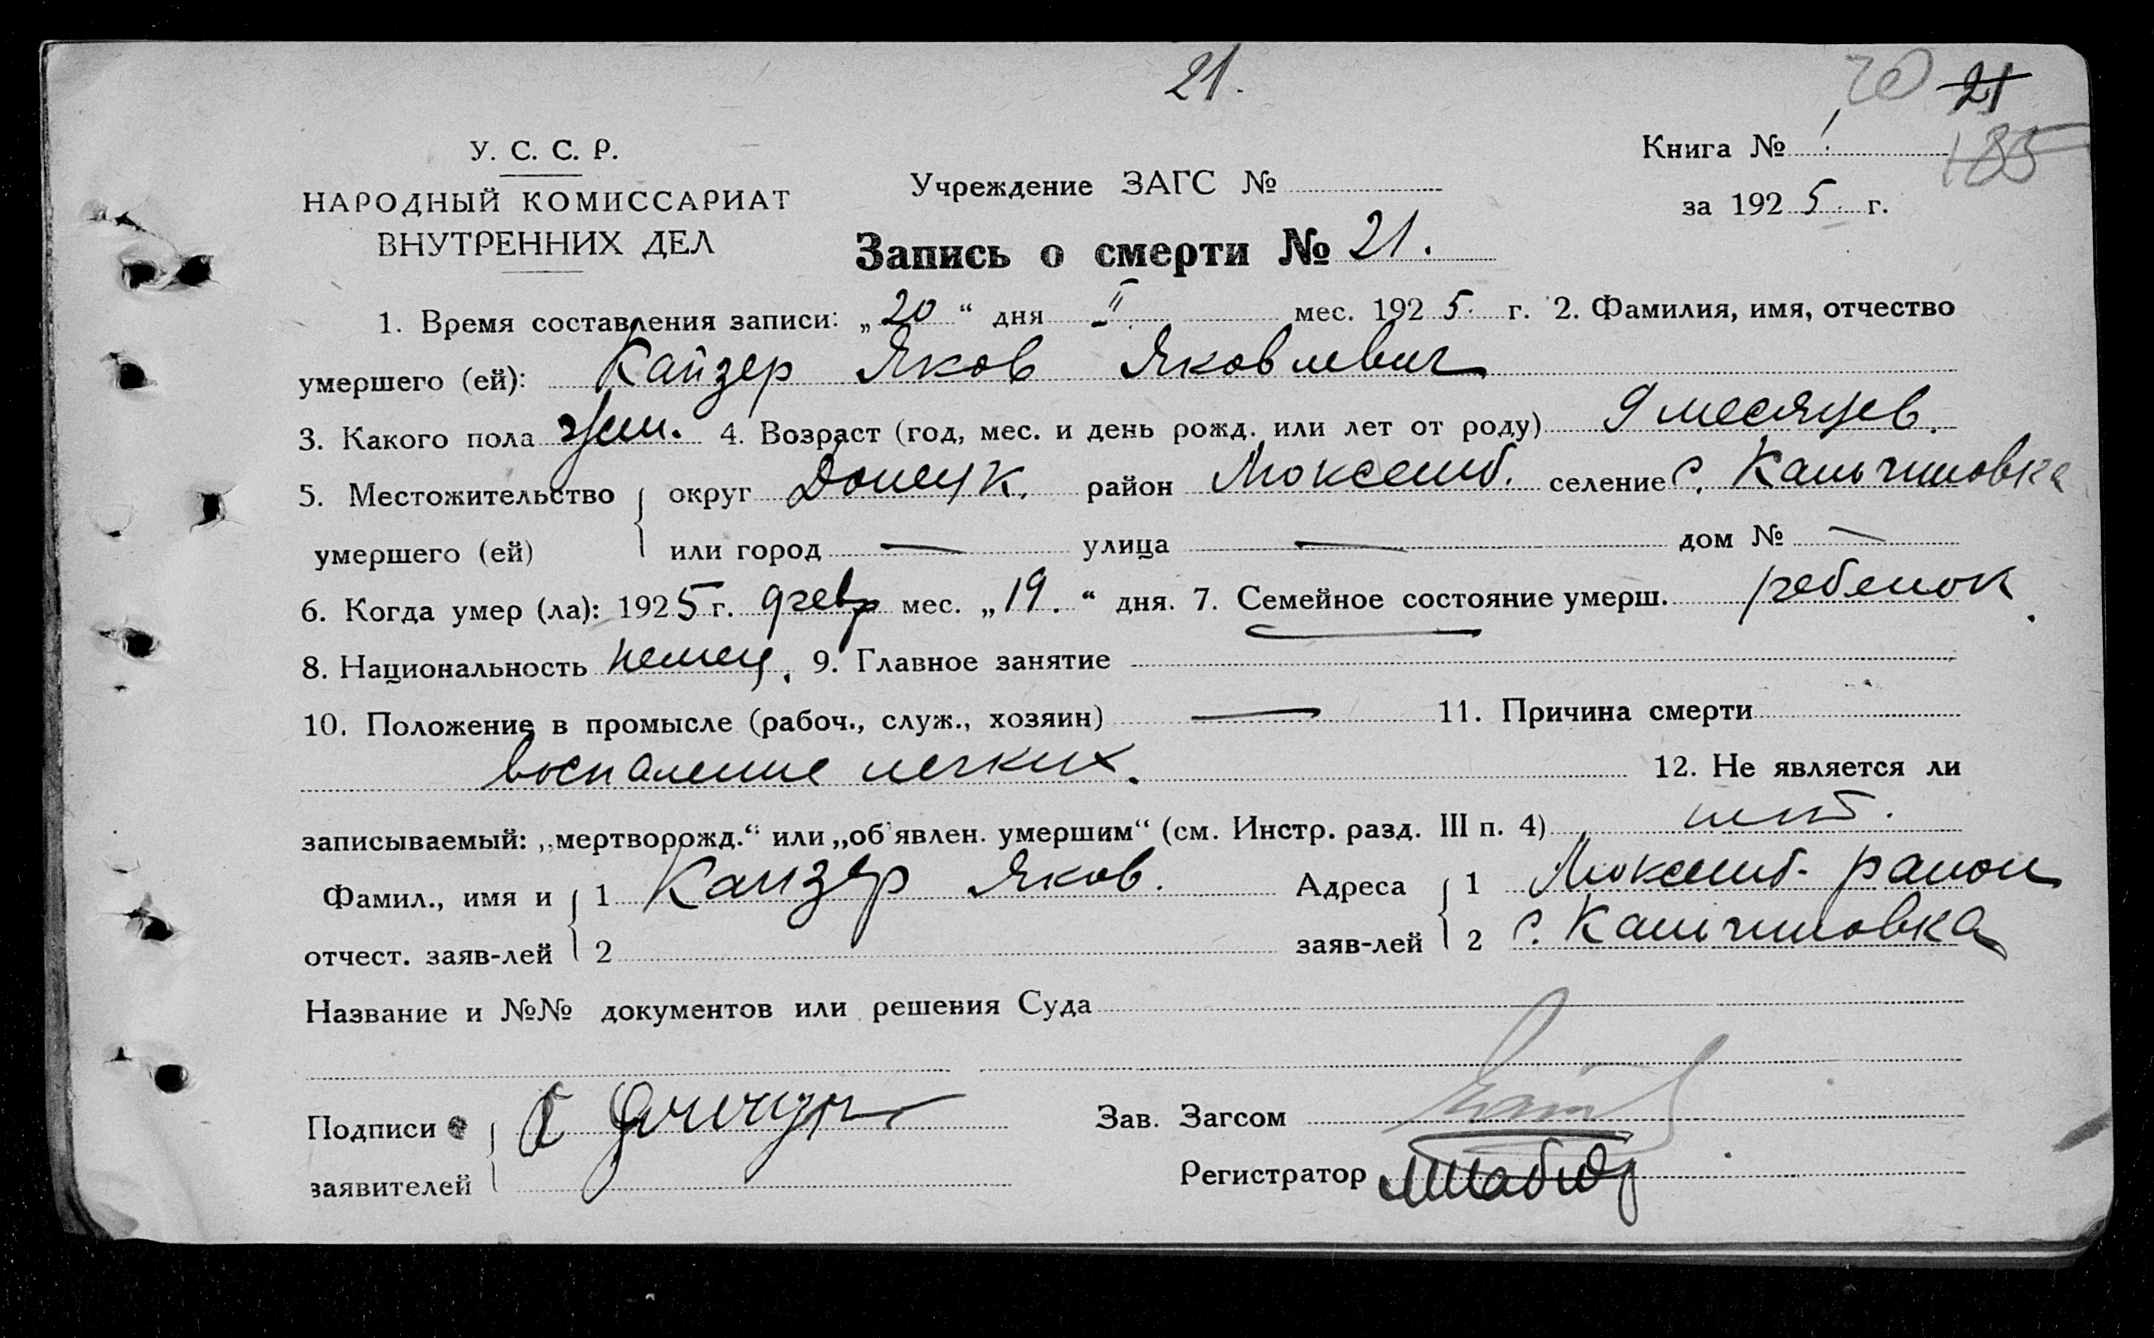 21.
20 21
У. С. С. Р.
Книга № 1
185
НАРОДНЫЙ КОМИССАРИАТ
Учреждение ЗАГС №
за 1925 г.
ВНУТРЕННИХ ДЕЛ
Запись о смерти № 21.
1. Время составления записи: „20“ дня II мес. 1925 г. 2. Фамилия, имя, отчество
умершего (ей): Кайзер Яков Яковлевич
3. Какого пола 4. Возраст (год, мес. и день рожд. или лет от роду) 9 месяцев.
5. Местожительство округ Донецк. район Люксемб. селение с. Кальчиновка
умершего (ей) или город — улица — дом № —
6. Когда умер (ла): 1925 г. февр мес. „19.“ дня. 7. Семейное состояние умерш. ребенок.
8. Национальность немец. 9. Главное занятие
10. Положение в промысле (рабоч., служ., хозяин) — 11. Причина смерти
воспаление легких. 12. Не является ли
записываемый: „мертворожд.“ или „об'явлен. умершим“ (см. Инстр. разд. III п. 4) нет.
Фамил., имя и 1 Кайзер Яков. Адреса 1 Люксемб. район
отчест. заяв-лей 2 заяв-лей 2 с. Кальчиновка
Название и №№ документов или решения Суда
Подписи Зав. Загсом
заявителей Регистратор